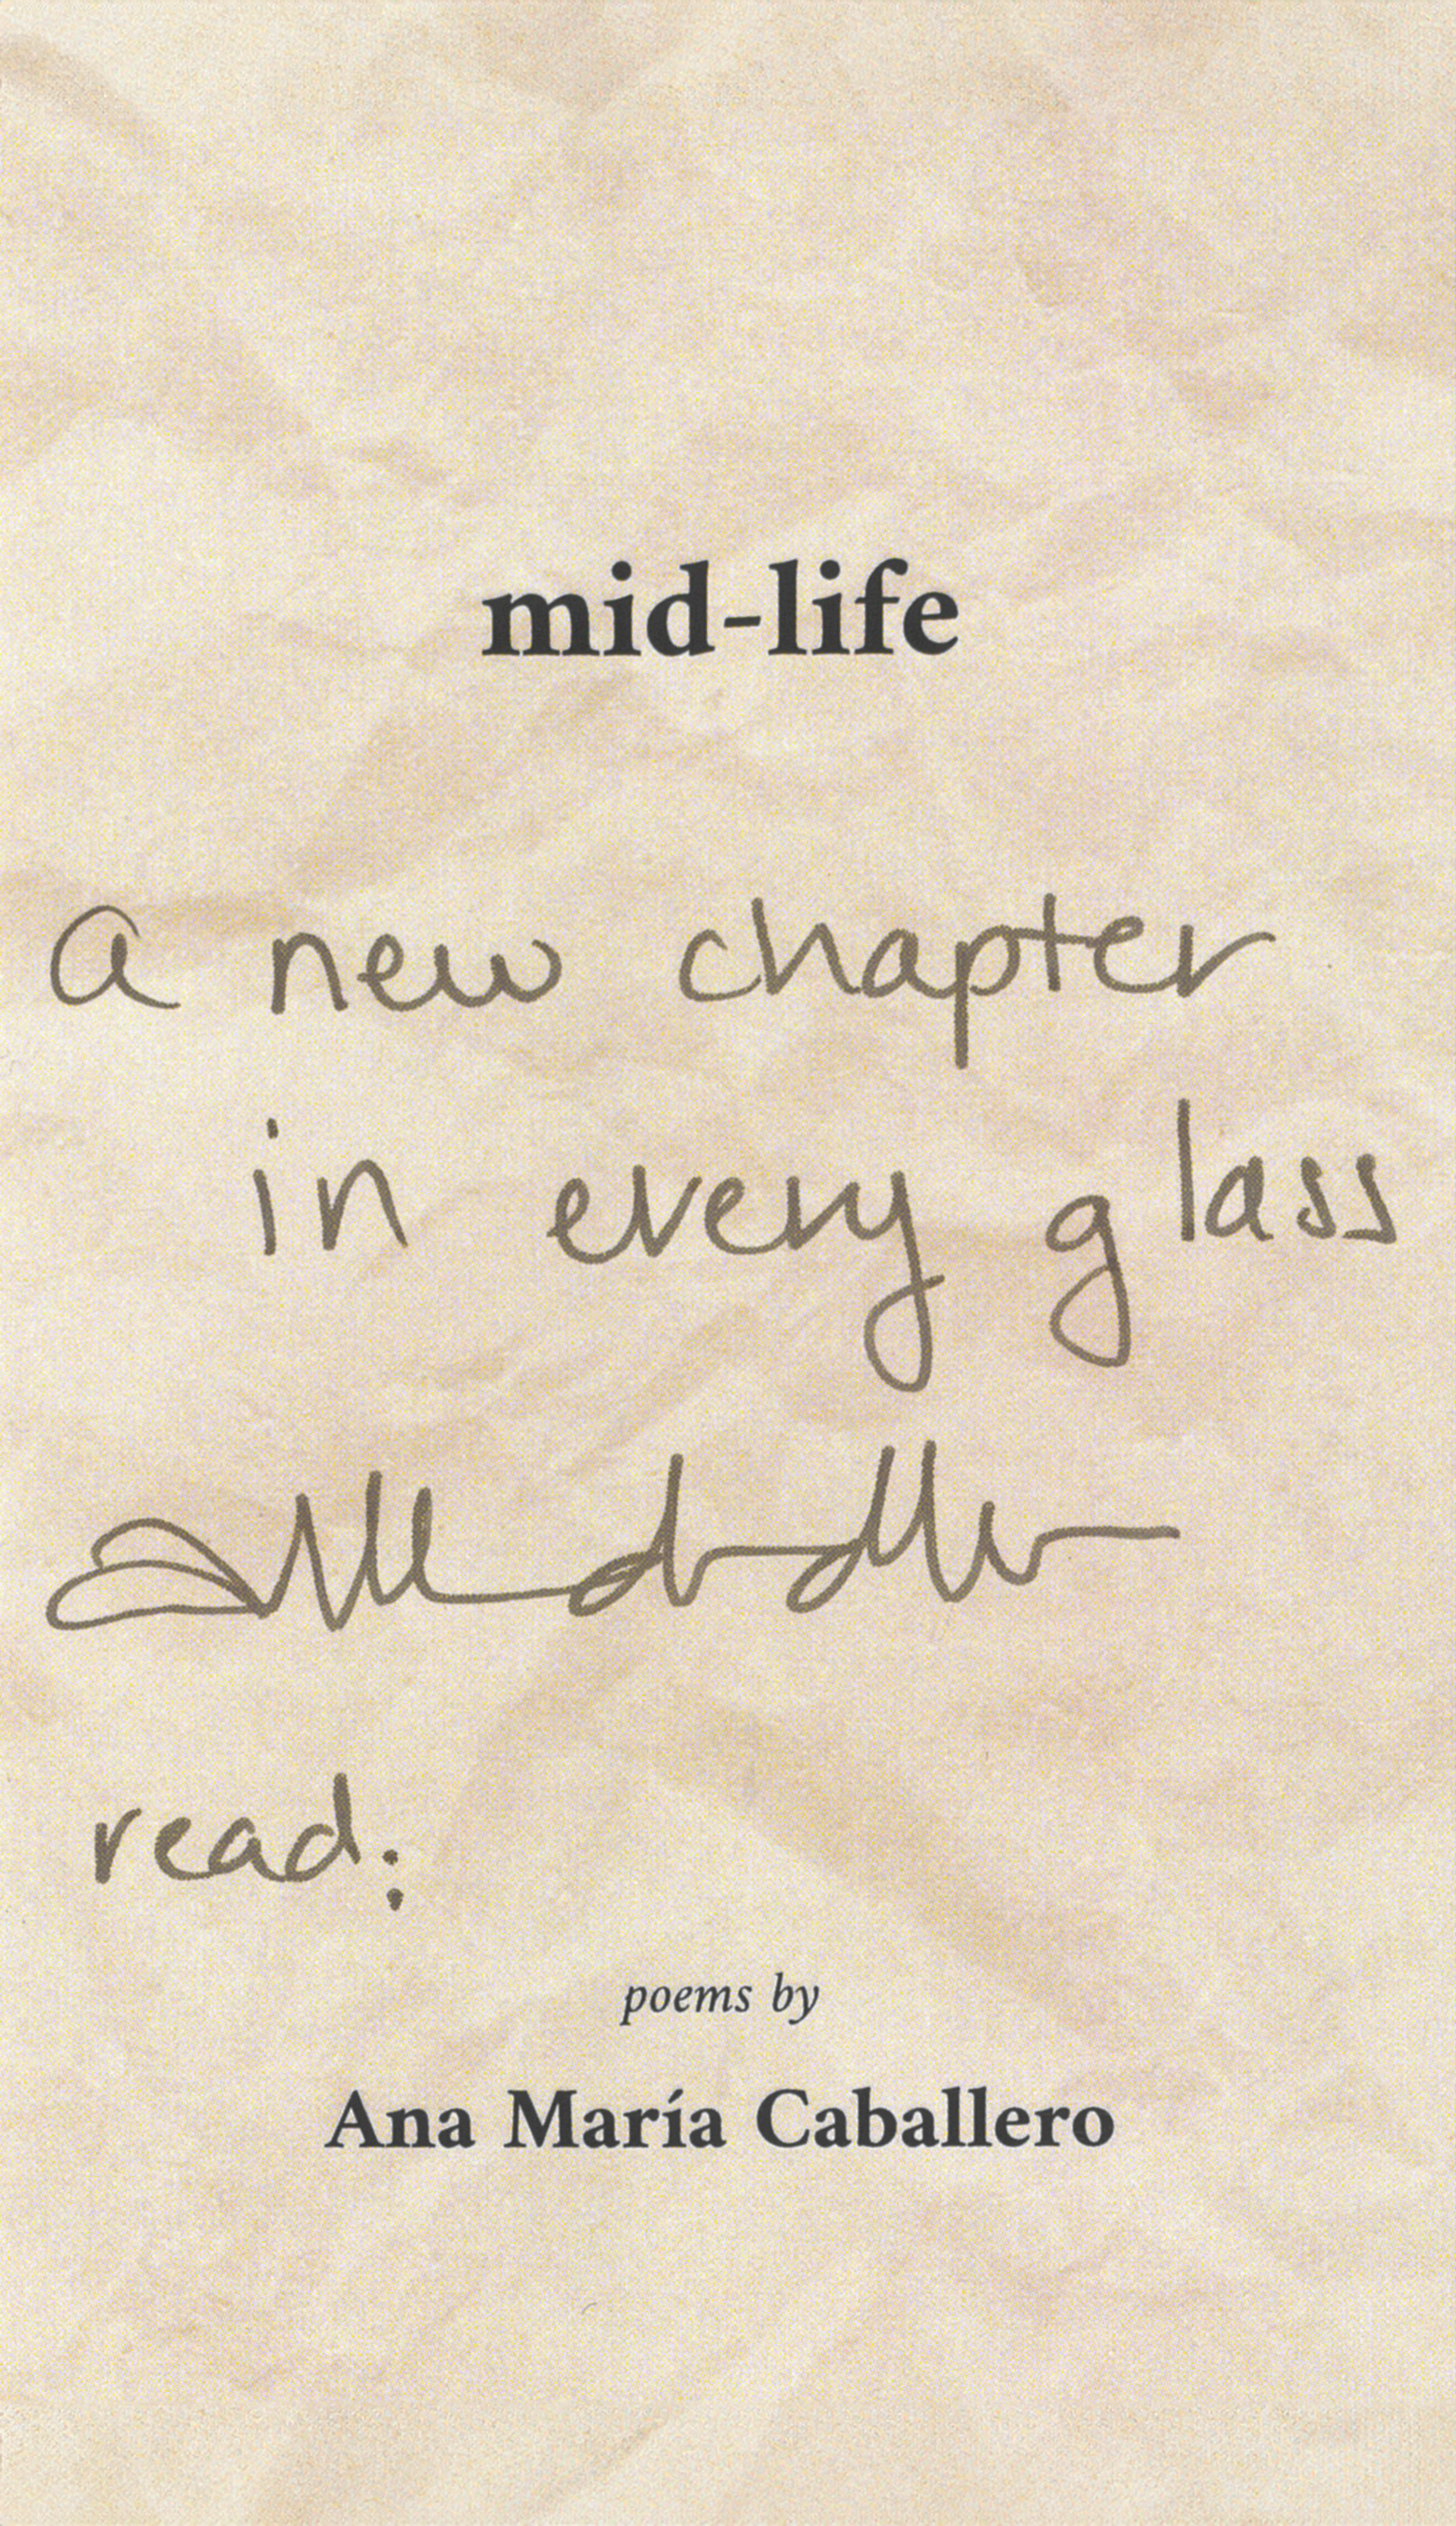 mid-life
a new chapter
in every glass
read:
poems by
Ana María Caballero